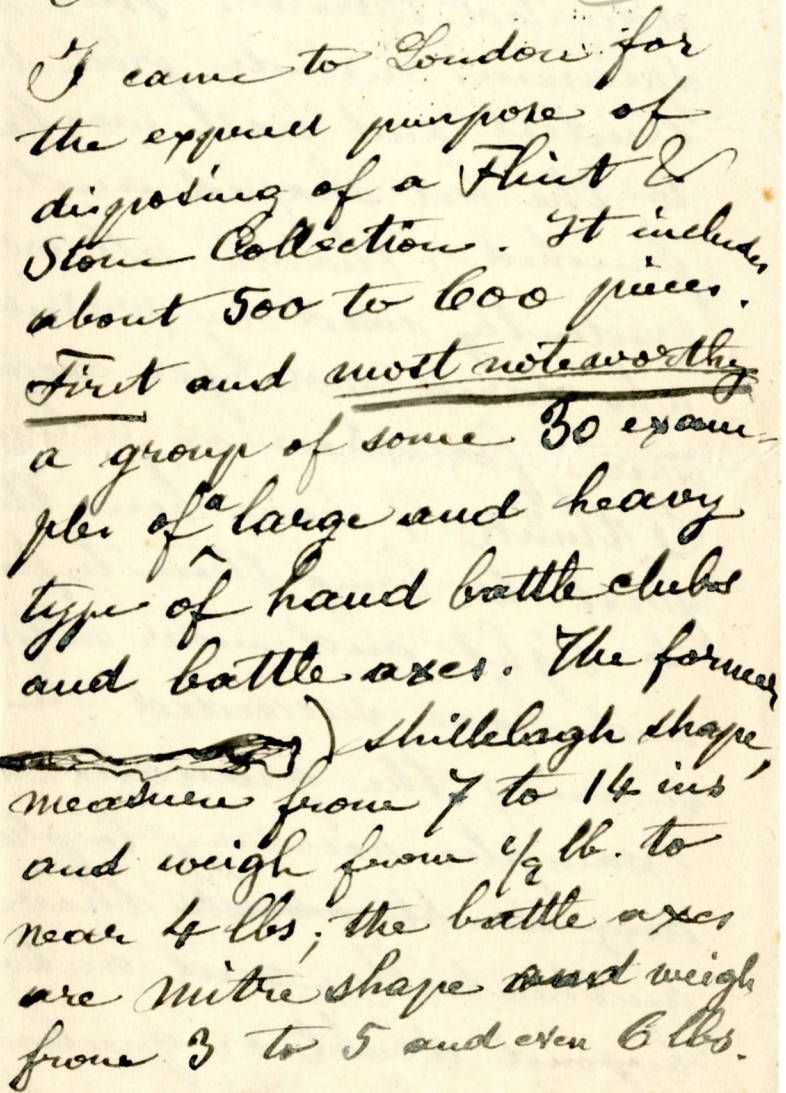 I came to London for
the express purpose of
disposing of a Flint &
Stone Collection. It includes
about 500 to 600 pieces.
First and most noteworthy
a group of some 30 exam-
ples of a large and heavy
type of hand battle clubs
and battle axes. The former
) shillelagh shape,
measure from 7 to 14 ins
and weigh from 1/2 lb. to
near 4 lbs; the battle axes
are mitre shape and weigh
from 3 to 5 and even 6 lbs.